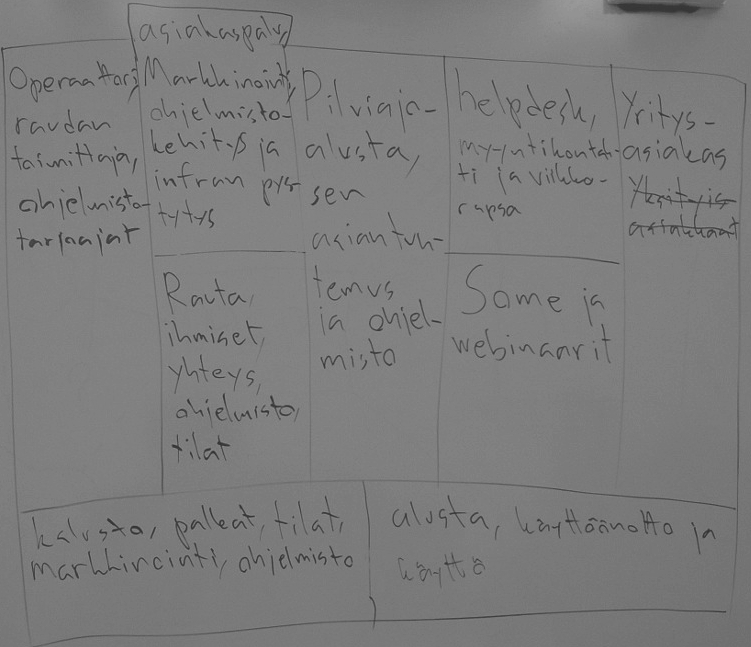 Operaattori,
raudan
toimittaja,
ohjelmisto-
tarjoajat
asiakaspalv,
Markkinointi,
ohjelmisto-
kehitys ja
infran pys
tytys
Rauta,
ihmiset,
yhteys,
ohjelmisto,
tilat
Pilviaja-
alusta,
sen
asiantun-
temus
ja ohjel-
misto
helpdesk,
myyntikontak-
ti ja viikko-
rapsa
Some ja
webinaarit
Yritys-
asiakas
Yksityis
asiakkaat
kalusto, palkat, tilat,
markkinointi, ohjelmisto
alusta, käyttöönotto ja
käyttö